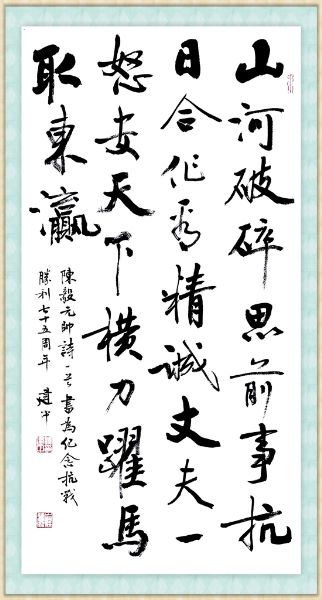 山河破碎思前事抗
日合作看精诚丈夫一
怒安天下横刀躍馬
取東瀛
陳毅元帥詩一首書為纪念抗戰
勝利七十五周年 建中